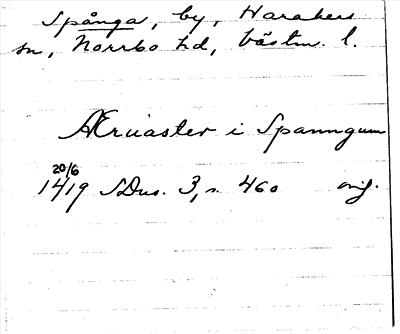 Spånga, by, Harakers
sn, Norrbo hd, Västm. l.
Ærnaster i Spanngum
20/6
1419 SDns. 3, s. 460 orig.